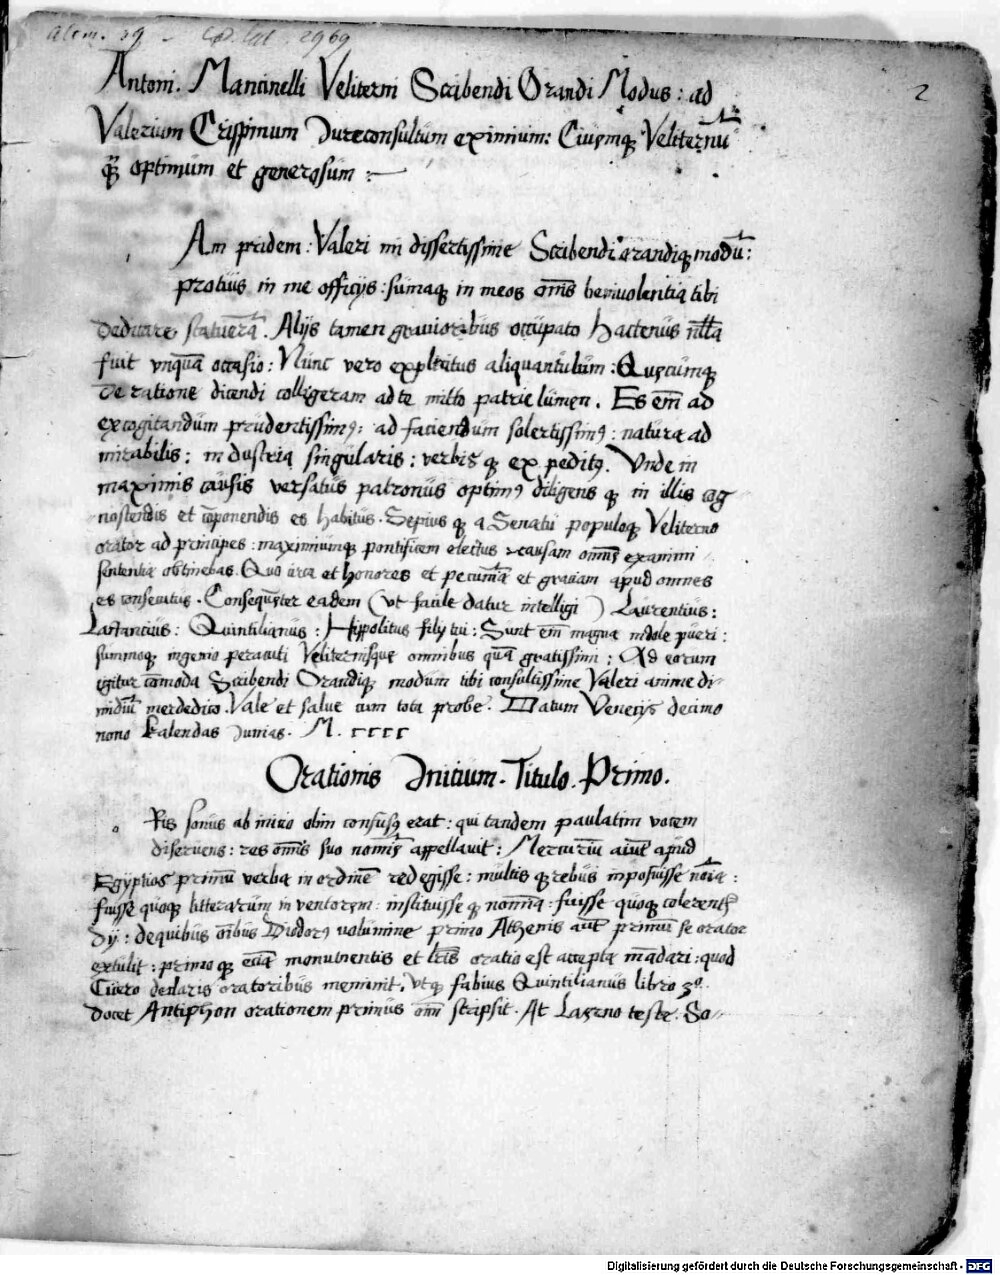 alem. 39 - Cod. lat. 2969
2
Antoni. Mancinelli Veliterni Scribendi Orandi Modus: ad
Valerium Crispinum Jureconsultum eximium: Ciuemq; Veliternū
q̄ optimum et generosum :
Am pridem: Valeri mi dissertissime Scribendi orandiq; modū:
protuis in me officijs: sumaq; in meos om̄s beniuolentia tibi
dedicare statuerā. Alijs tamen grauioribus occupato hactenus nll̄a
fuit vnquā occasio: Nunc vero explicitus aliquantulum: Quęcumq;
De ratione dicendi colligeram ad te mitto patrie lumen. Es em̄ ad
excogitandum prudentissimꝰ: ad faciendum solertissimꝰ: natura ad
mirabilis: industria singularis: verbis q; expeditꝰ. Vnde in
maximis causis versatus patronus optimꝰ diligens q; in illis cog
noscendis et cōponendis es habitus. Sepius q; a Senatu populoq; Veliterno
orator ad principes: maximumq; pontificem electus causam omniū examini
sententia obtinebas. Quo circa et honores et pecuniā et gratiam apud omnes
es consecutus. Consequēter eadem (vt facile datur intelligi) Laurentius:
Lactantius: Quintilianus: Hippolitus filij tui: Sunt em̄ magna indole pueri:
summoq; ingenio peracuti Veliternisque omnibus quā gratissimi: Ad eorum
igitur cōmoda Scribendi Orandiq; modum tibi consultissime Valeri anime di
midiū meę dedico. Vale et salue cum tota probe. Datum Venetijs decimo
nono kalendas Junias. M. cccc
Orationis Jnitium. Titulo. Primo.
Ris sonus ab initio olim confusꝰ erat: qui tandem paulatim votem
diseruens: res om̄is suo nomīs appellauit: Mercuriū aiūt apud
Egyptios primū verba in ordinē redegisse: multis q; rebus imposuisse noīa:
fuisse quoq; litterarum inventorem: instituisse q; fuisse quoq; colerent̄
Dij: de quibus oībus Diodorꝰ volumine primo Athenis aūt primū se orator
extulit: primo q; etiā monumentis et lr̄is oratio est accepta mādari: quod
Cicero de claris oratoribus meminit, vtq; fabius Quintilianus libro 3º.
docet Antiphon orationem primus om̄ scripsit. At Laęrno teste. So-
Digitalisierung gefördert durch die Deutsche Forschungsgemeinschaft - DFG